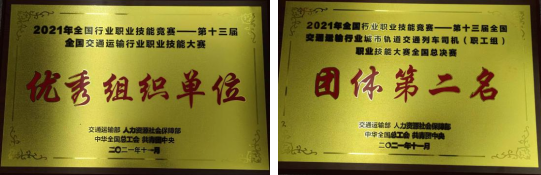 2021年全国行业职业技能竞赛——第十三届
全国交通运输行业职业技能大赛
优秀组织单位
交通运输部 人力资源社会保障部
中华全国总工会 共青团中央
二〇二一年十一月
2021年全国行业职业技能竞赛——第十三届全国
交通运输行业城市轨道交通列车司机（职工组）
职业技能大赛全国总决赛
团体第二名
交通运输部 人力资源社会保障部
中华全国总工会 共青团中央
二〇二一年十一月